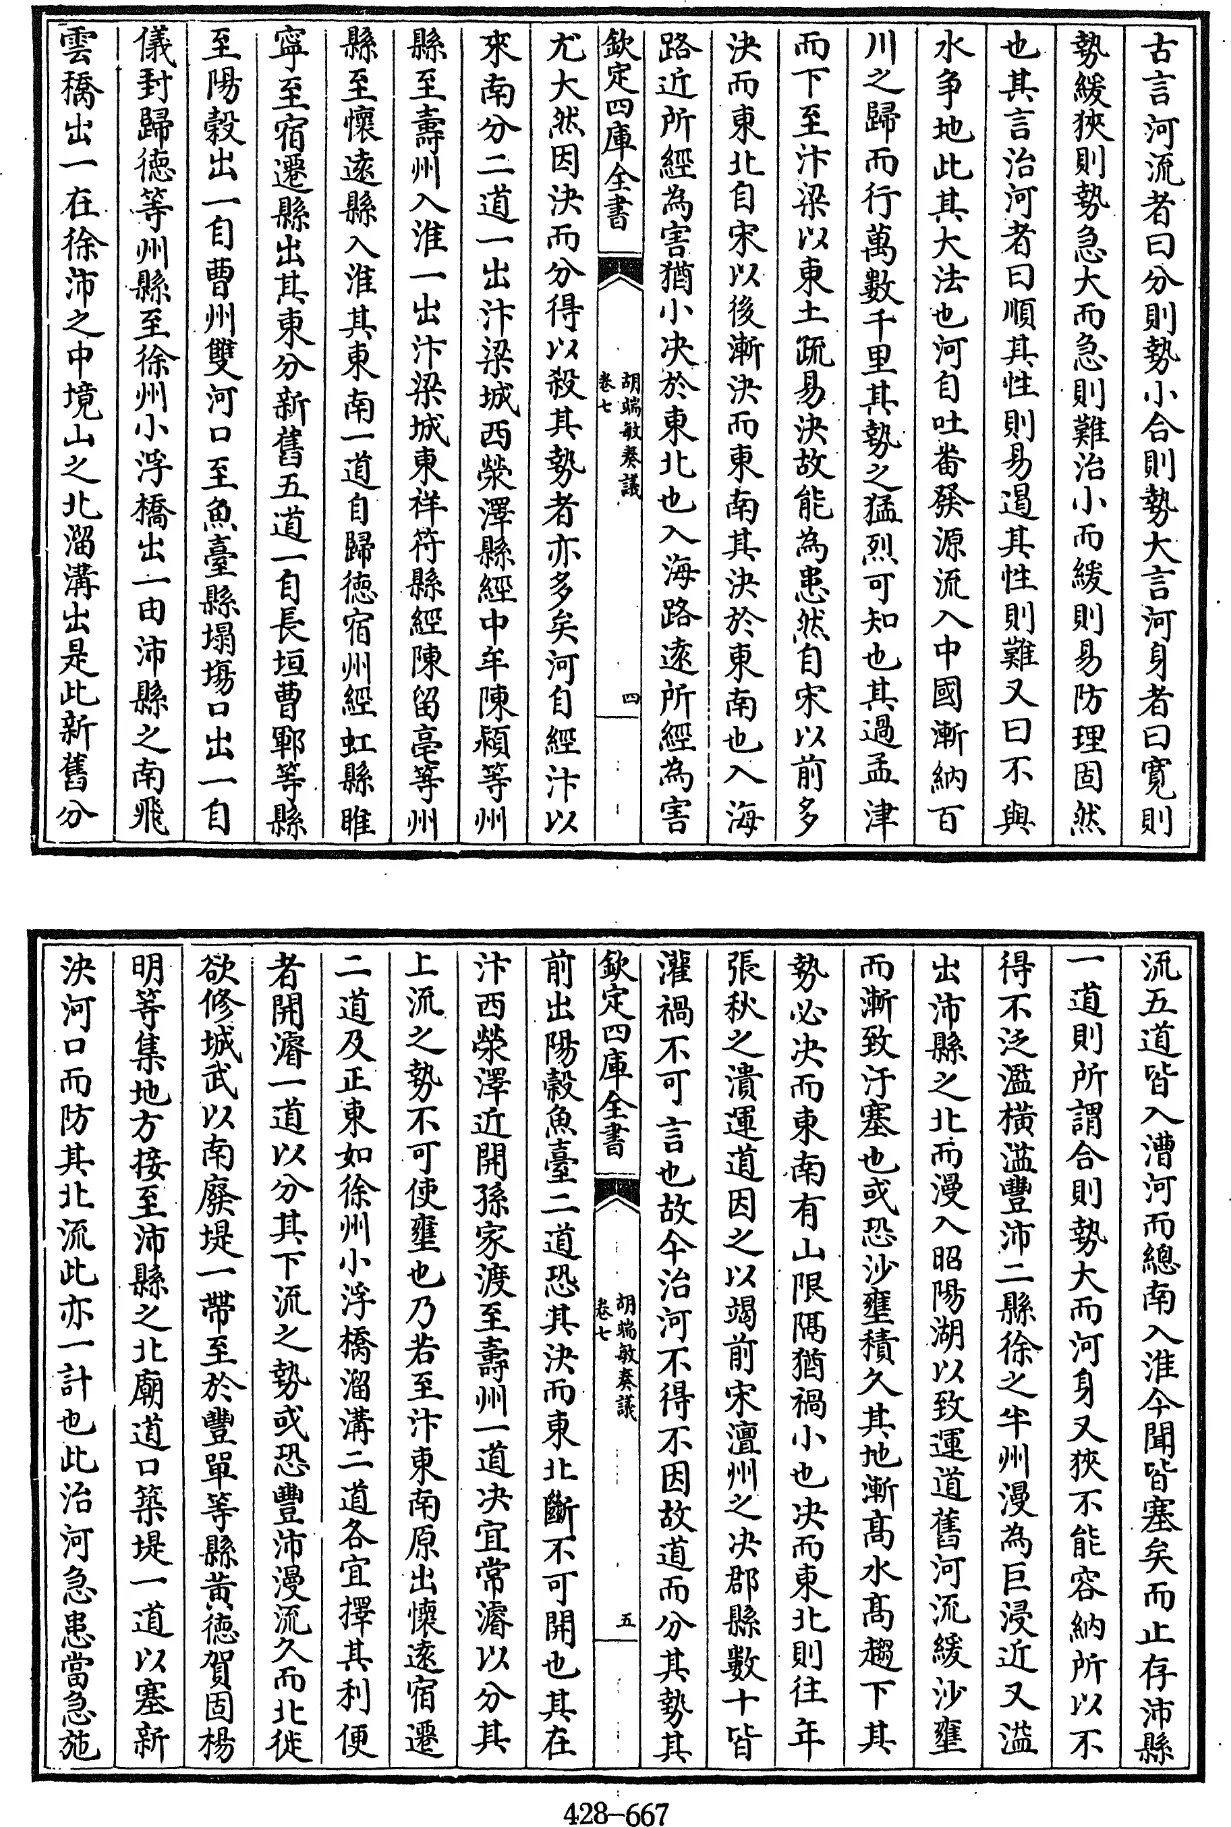 古言河流者曰分則勢小合則勢大言河身者曰寛則
勢緩狹則勢急大而急則難治小而緩則易防理固然
也其言治河者曰順其性則易遏其性則難又曰不與
水争地此其大法也河自吐番發源流入中國漸納百
川之歸而行萬數千里其勢之猛烈可知也其過孟津
而下至汴梁以東土疏易決故能為患然自宋以前多
決而東北自宋以後漸決而東南其決於東南也入海
路近所經為害猶小決於東北也入海路遠所經為害
欽定四庫全書
胡端敏奏議
卷七
四
尤大然因決而分得以殺其勢者亦多矣河自經汴以
來南分二道一出汴梁城西滎澤縣經中牟陳潁等州
縣至壽州入淮一出汴梁城東祥符縣經陳留亳等州
縣至懷遠縣入淮其東南一道自歸德宿州經虹縣睢
寧至宿遷縣出其東分新舊五道一自長垣曹鄆等縣
至陽穀出一自曹州雙河口至魚臺縣塌塲口出一自
儀封歸德等州縣至徐州小浮橋出一由沛縣之南飛
雲橋出一在徐沛之中境山之北溜溝出是此新舊分
流五道皆入漕河而總南入淮今聞皆塞矣而止存沛縣
一道則所謂合則勢大而河身又狹不能容納所以不
得不泛濫橫溢豐沛二縣徐之半州漫為巨浸近又溢
出沛縣之北而漫入昭陽湖以致運道舊河流緩沙壅
而漸致汙塞也或恐沙壅積久其地漸髙水髙趨下其
勢必決而東南有山限隔猶禍小也決而東北則往年
張秋之潰運道因之以竭前宋澶州之決郡縣數十皆
灌禍不可言也故今治河不得不因故道而分其勢其
欽定四庫全書
胡端敏奏議
卷七
五
前出陽穀魚臺二道恐其決而東北斷不可開也其在
汴西滎澤近開孫家渡至壽州一道決宜常濬以分其
上流之勢不可使壅也乃若至汴東南原出懷遠宿遷
二道及正東如徐州小浮橋溜溝二道各宜擇其利便
者開濬一道以分其下流之勢或恐豐沛漫流久而北徙
欲修城武以南廢堤一帶至於豐單等縣黄德賀固楊
明等集地方接至沛縣之北廟道口築堤一道以塞新
決河口而防其北流此亦一計也此治河急患當急施
428-667